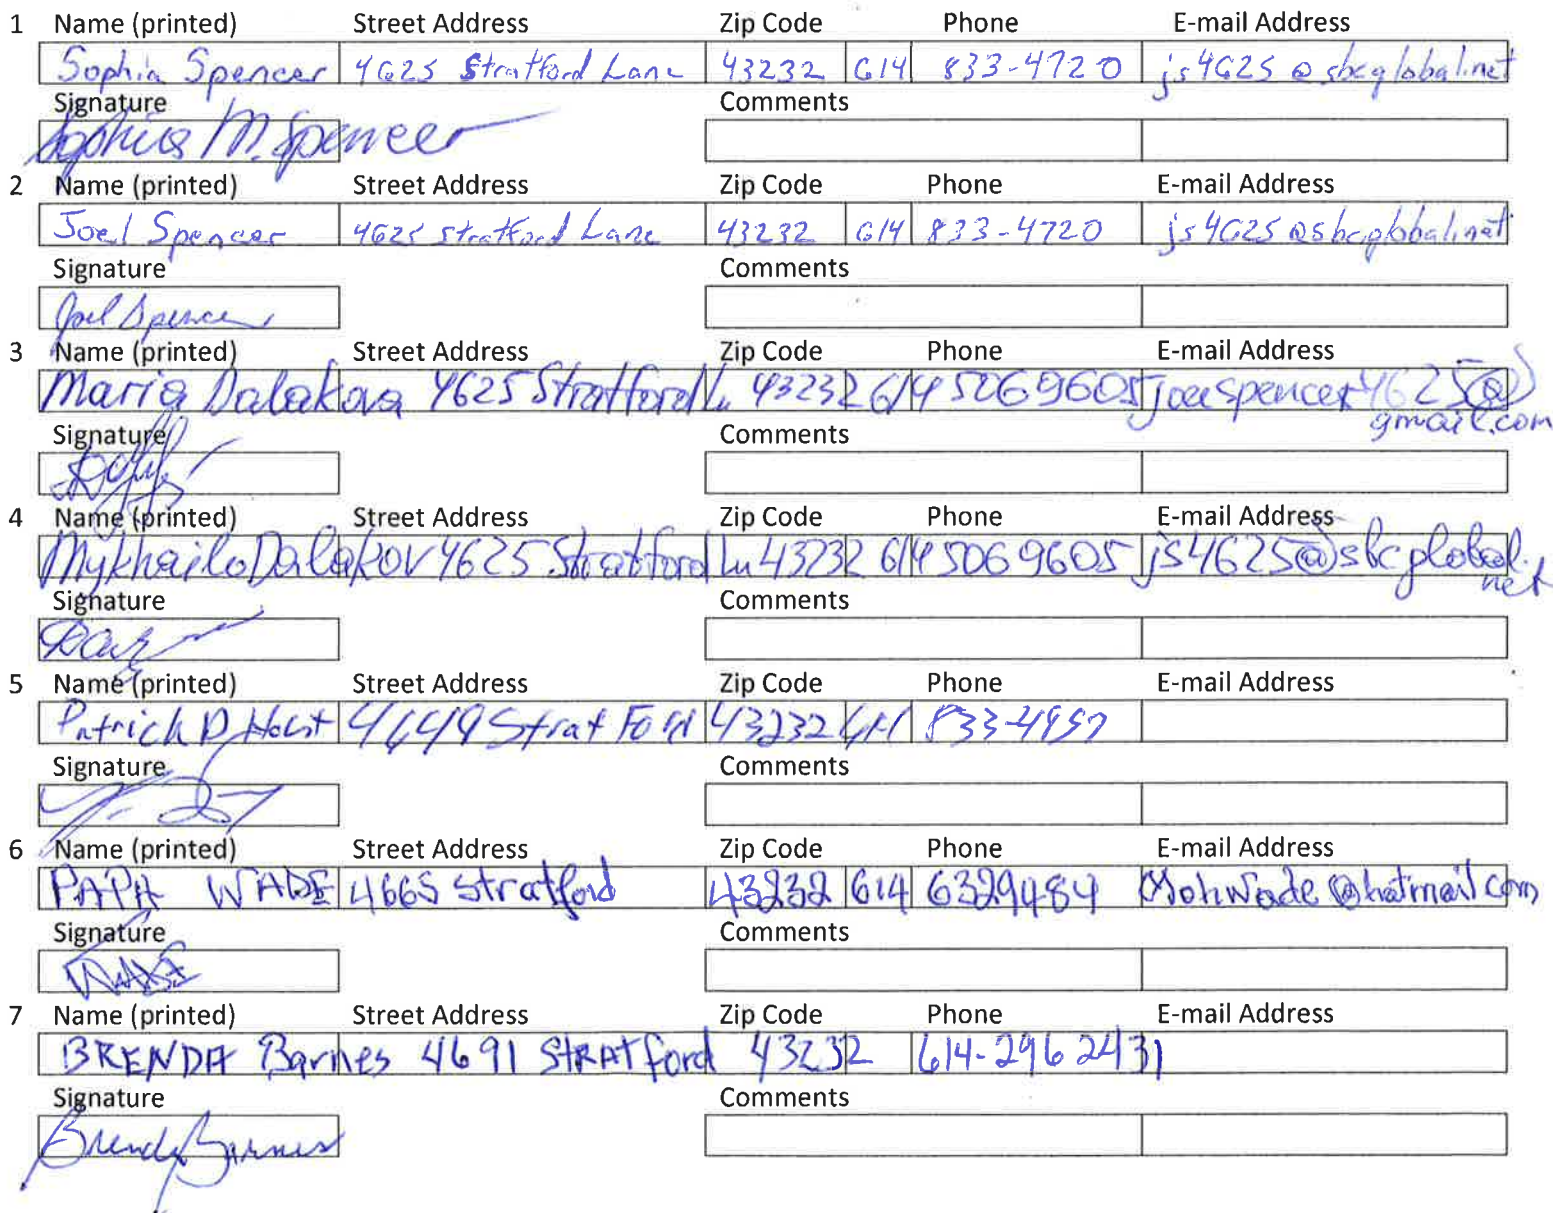 1 Name (printed) Street Address Zip Code Phone E-mail Address
Sophia Spencer 4625 Stratford Lane 43232 614 833-4720 js4625@sbcglobal.net
Signature Comments
Sophia M. Spencer
2 Name (printed) Street Address Zip Code Phone E-mail Address
Joel Spencer 4625 Stratford Lane 43232 614 833-4720 js4625@sbcglobal.net
Signature Comments
Joel Spencer
3 Name (printed) Street Address Zip Code Phone E-mail Address
Maria Dalakova 4625 Stratford Ln 43232 614 5069605 joespencer4625@
gmail.com
Signature Comments
4 Name (printed) Street Address Zip Code Phone E-mail Address
Mykhailo Dalakov 4625 Stratford Ln 43232 614 5069605 js4625@sbcglobal.
net
Signature Comments
5 Name (printed) Street Address Zip Code Phone E-mail Address
Patrick D 4649 Strat Ford 43232 614
Signature Comments
6 Name (printed) Street Address Zip Code Phone E-mail Address
PAPA WADE 4665 Stratford 43232 614 6329484
Signature Comments
WADE
7 Name (printed) Street Address Zip Code Phone E-mail Address
BRENDA Barnes 4691 STRATford 43232 614-296 2431
Signature Comments
Brenda Barnes